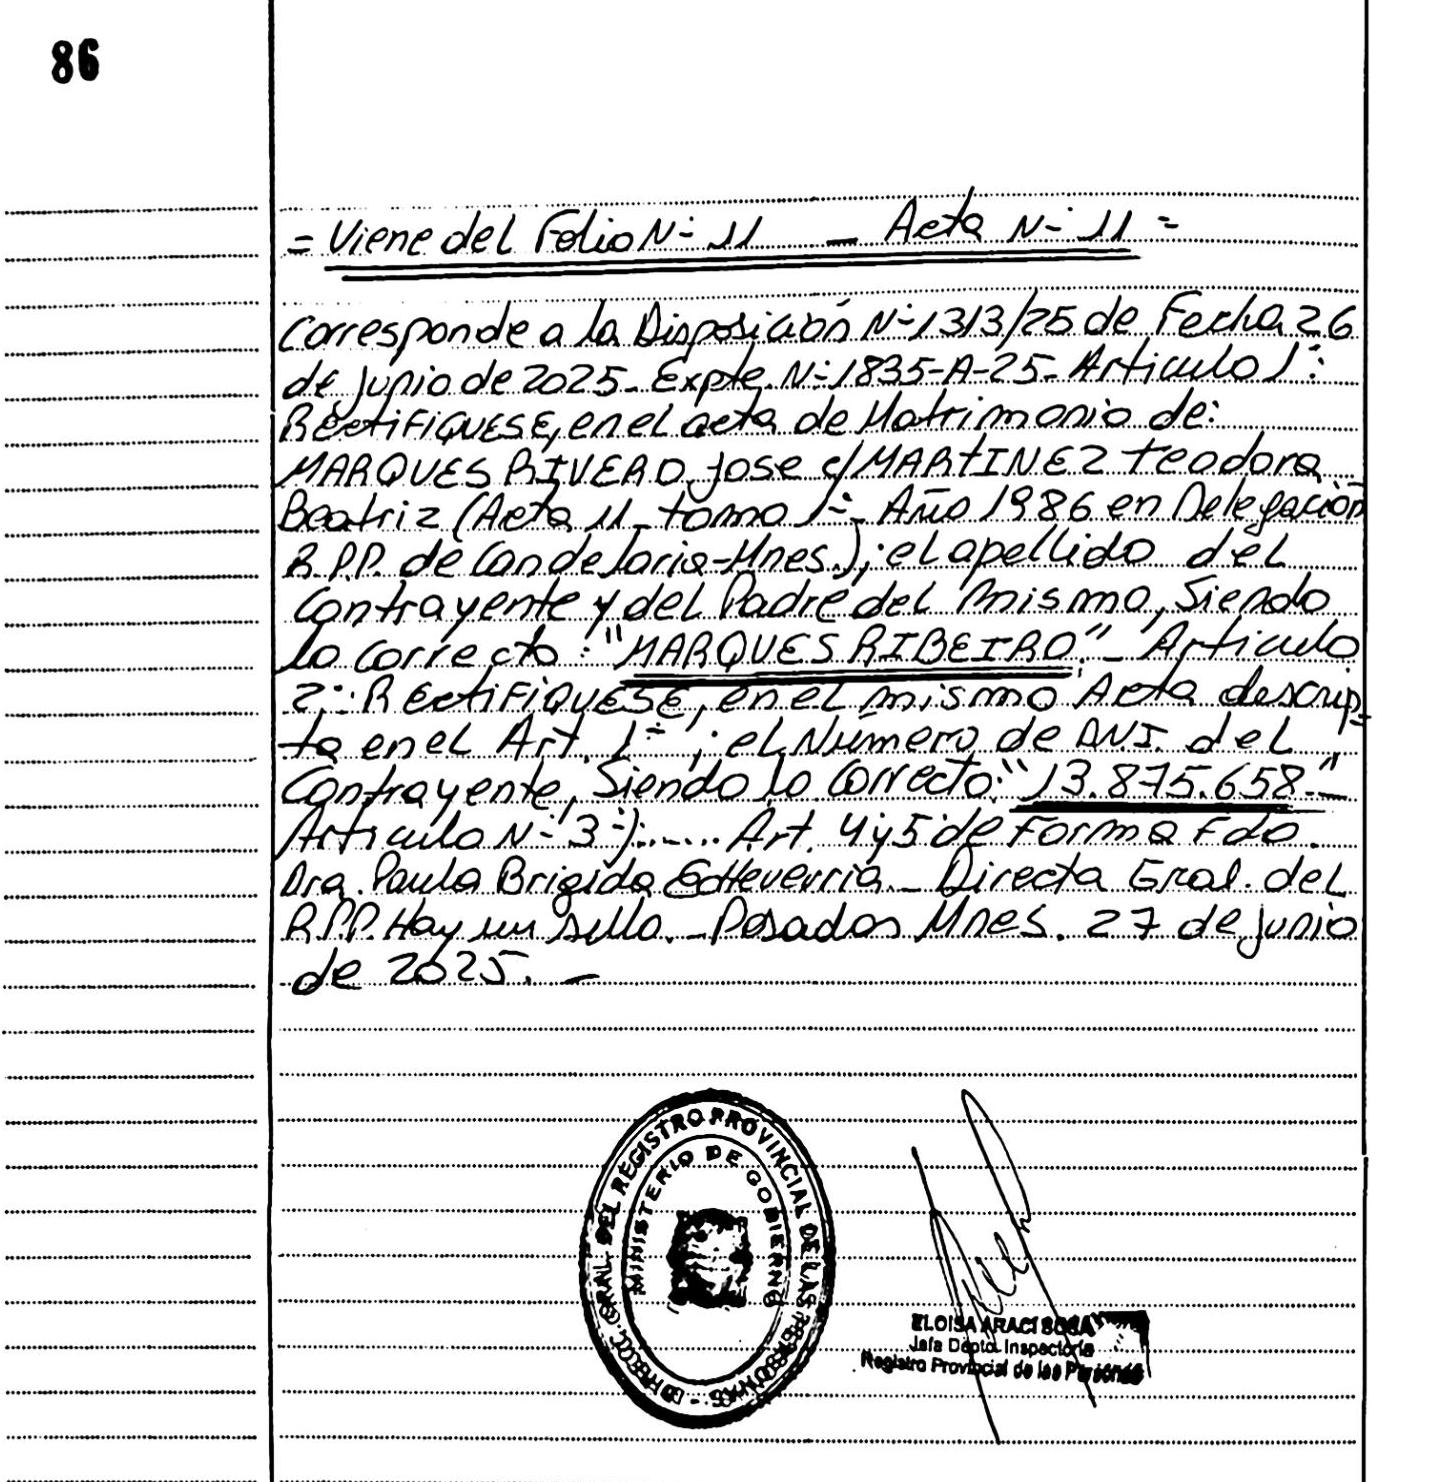 86
= Viene del Folio Nº 11 _ Acta Nº 11 =
Corresponde a la Disposición Nº 1313/25 de Fecha 26
de junio de 2025_ Expte. Nº 1835-A-25_ Articulo 1º:
RECtiFiQUESE, en el acta de Matrimonio de:
MARQUES RIVERO Jose c/MARtINEZ teodora
Beatriz (Acta 11_ tomo 1º_ Año 1986 en Delegación
R.P.P. de Candelaria-Mnes.); el apellido del
Contrayente y del Padre del mismo, Siendo
lo Correcto: "MARQUES RIBEIRO"._ Articulo
2º: RECtiFiQUESE, en el mismo Acta descrip-
ta en el Art. 1º; el Número de D.N.I. del
Contrayente, Siendo lo Correcto: "13.875.658"_
Articulo Nº 3º)....... Art. 4 y 5 de Forma Fdo.
Dra. Paula Brigida Etcheverria._ Directa Gral. del
R.P.P. Hay un sello._ Posadas Mnes. 27 de junio
de 2025._
DIRECC. GRAL. DEL REGISTRO PROVINCIAL DE LAS PERSONAS -
MINISTERIO DE GOBIERNO
ELOISA ARACI SOSA
Jefa Depto. Inspectoria
Registro Provincial de las Personas